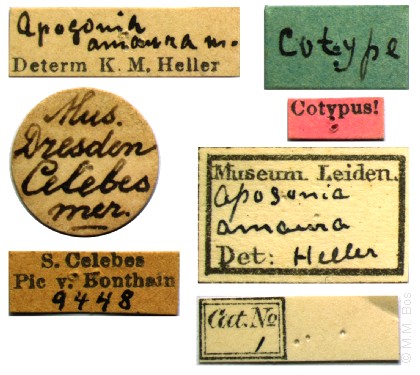 Apogonia
amaura m.
Determ K. M. Heller
Mus.
Dresden
Celebes
mer.
S. Celebes
Pic v. Bonthain
9448
Cotype
Cotypus!
Museum Leiden.
apogonia
amaura
Det: Heller
Cat. No
1
© M.M. Bos